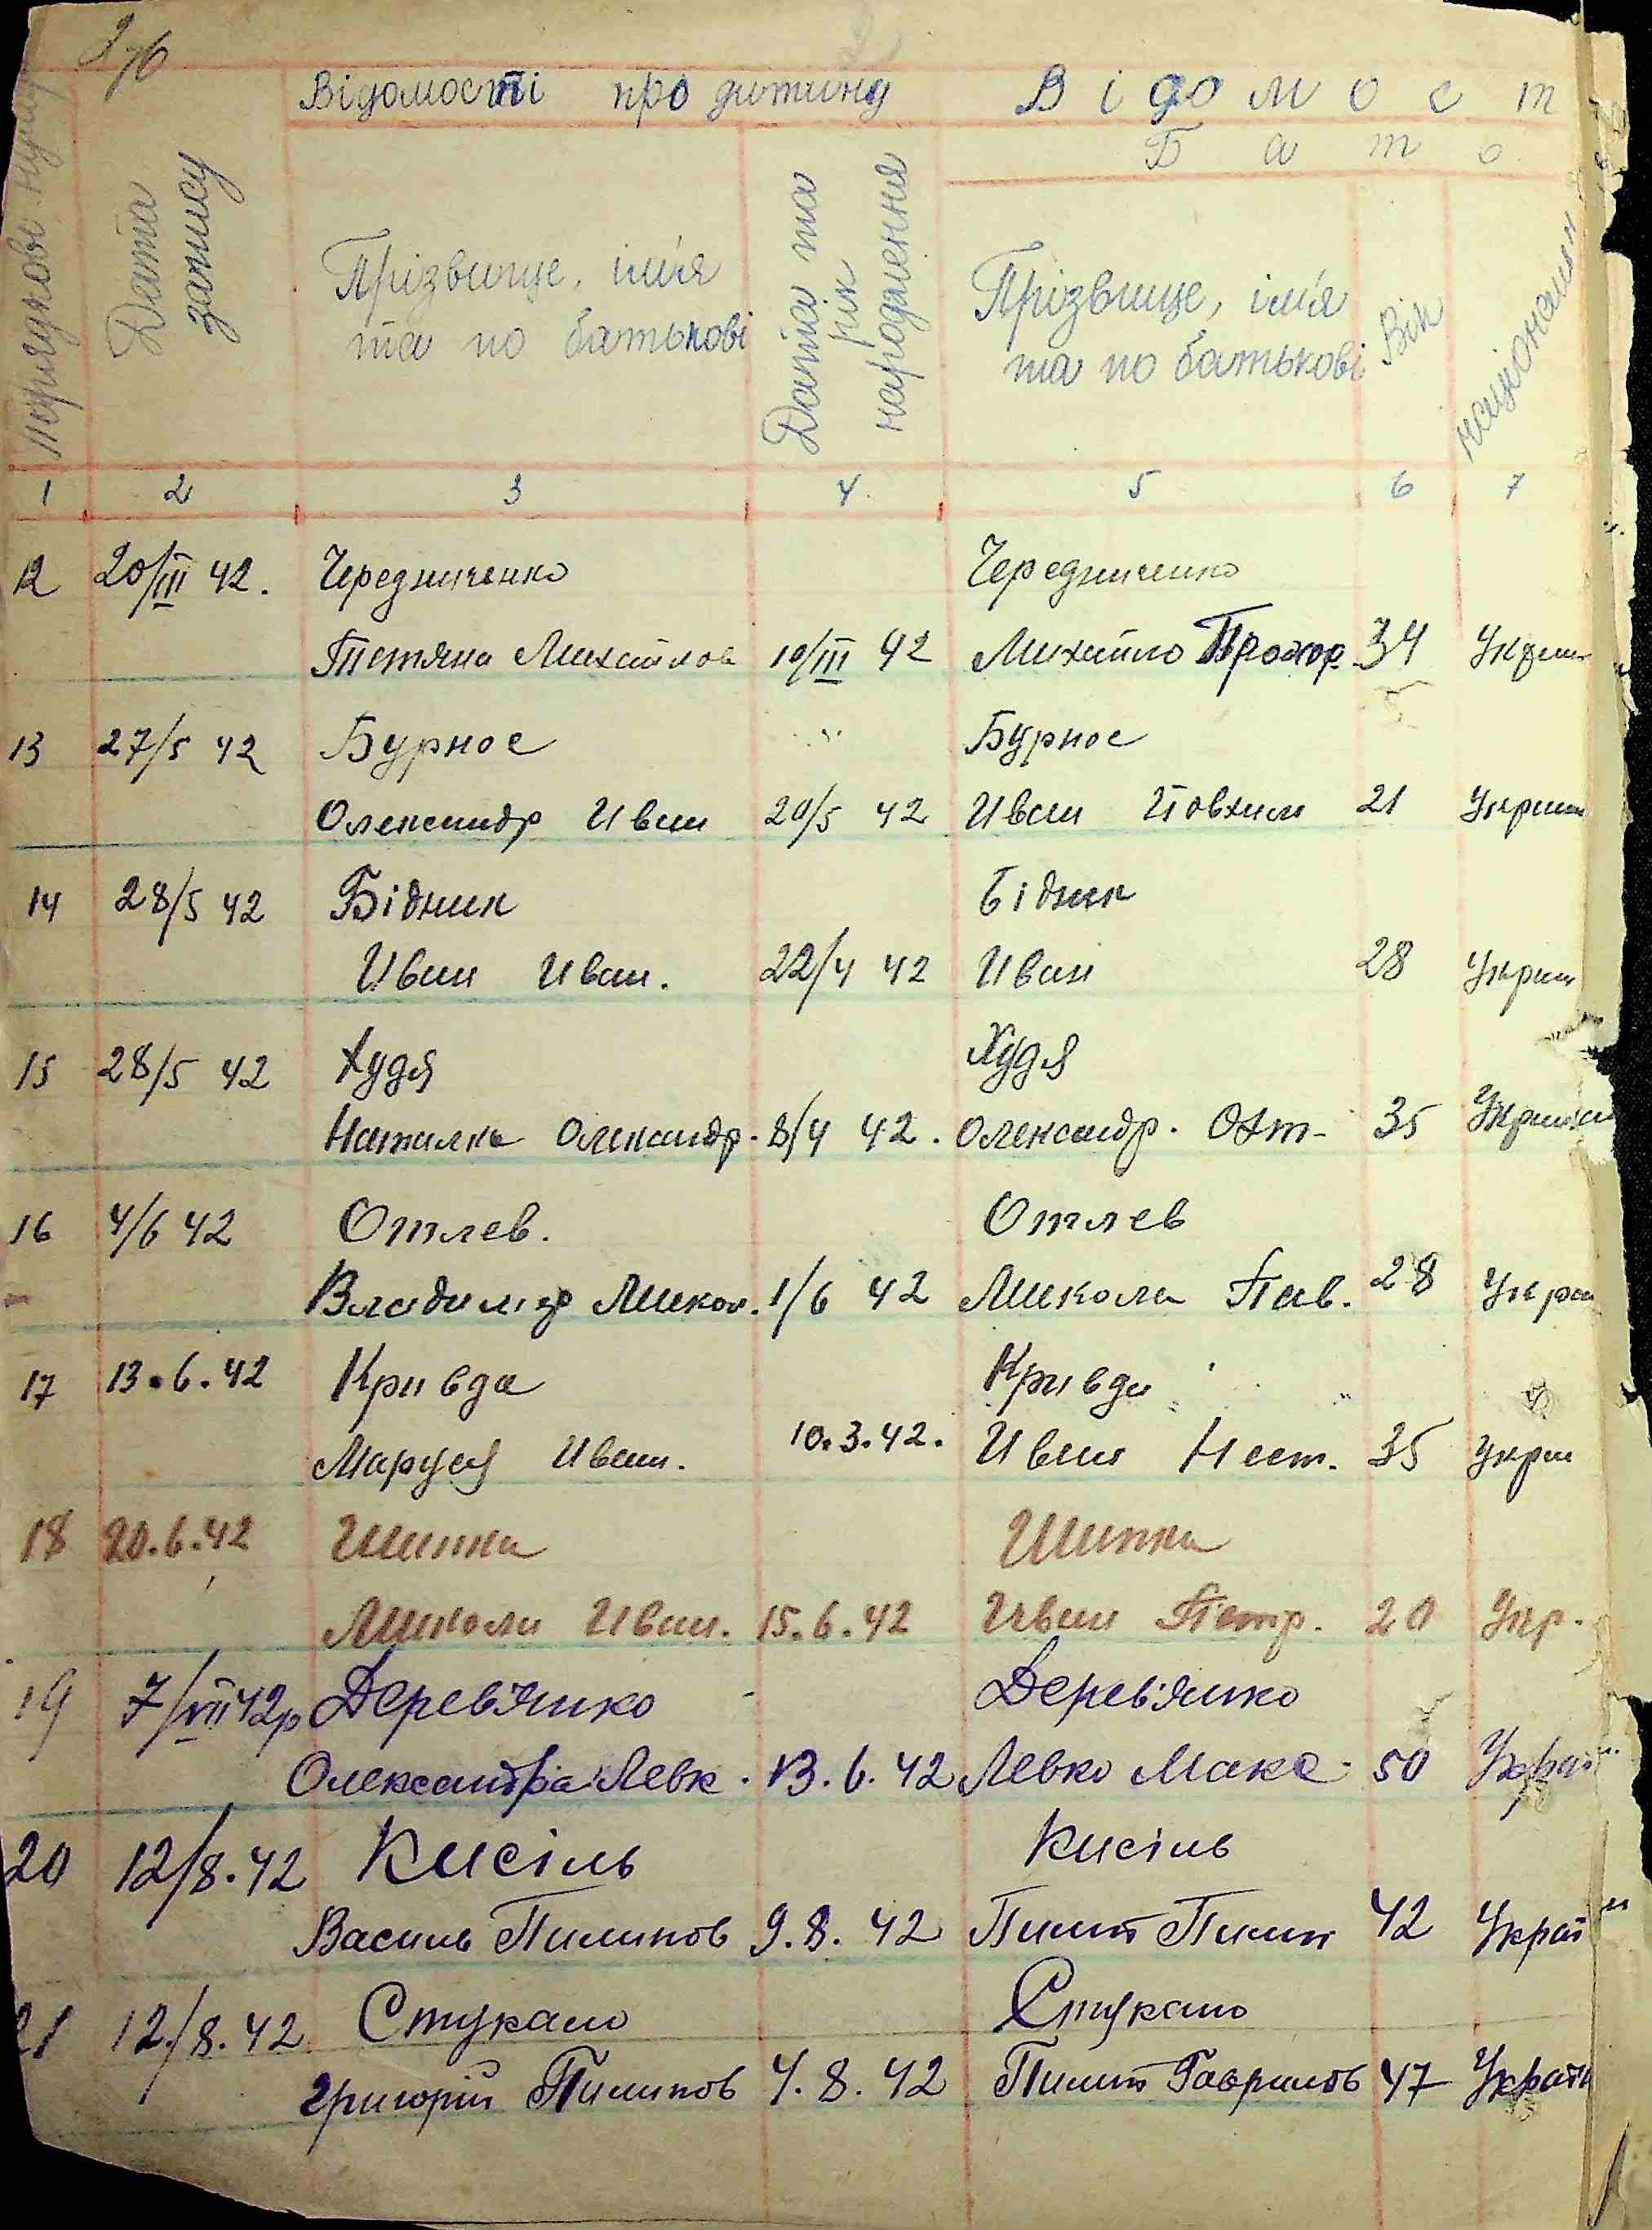 Відомості про дитину
В і д о м о с т
Б а т ь
порядкові
Дата запису
Прізвище, ім'я
та по батькові
Дата та рік народження
Прізвище, ім'я
та по батькові
Вік
націонал
1 2 3 4 5 6 7
12 20/III 42. Чередниченко Чередниченко
Тетяна Михайлов 10/III 42 Михайло Прохор. 34 Україн
13 27/5 42 Бурное Бурное
Олександр Иван 20/5 42 Иван Йовхим 21 Україн
14 28/5 42 Бідник Бідник
Иван Иван. 22/4 42 Иван 28 Україн
15 28/5 42 Худя Худя
Наталка Олександр. 8/4 42. Олександр. 35 Українс
16 4/6 42 Отлев. Отлев
Владимир Микол. 1/6 42 Микола Пав. 28 Укра
17 13.6.42 Кривда Кривда
Маруся Иван. 10.3.42. Иван Нест. 35 Укра
18 20.6.42 Шипка Шипка
Микола Иван. 15.6.42 Иван Петр. 20 Укр.
19 7/VII 42р Дерев'янко Дерев'янко
Олександра Левк. 13.6.42 Левко Макс. 50 Украї
20 12/8.42 Кисіль Кисіль
Василь Пилипов 9.8.42 Пилип Пилип 42 Украї
21 12/8.42 Стукало Стукало
Григорій Пилипов 4.8.42 Пилип Гаврилов 47 Україн